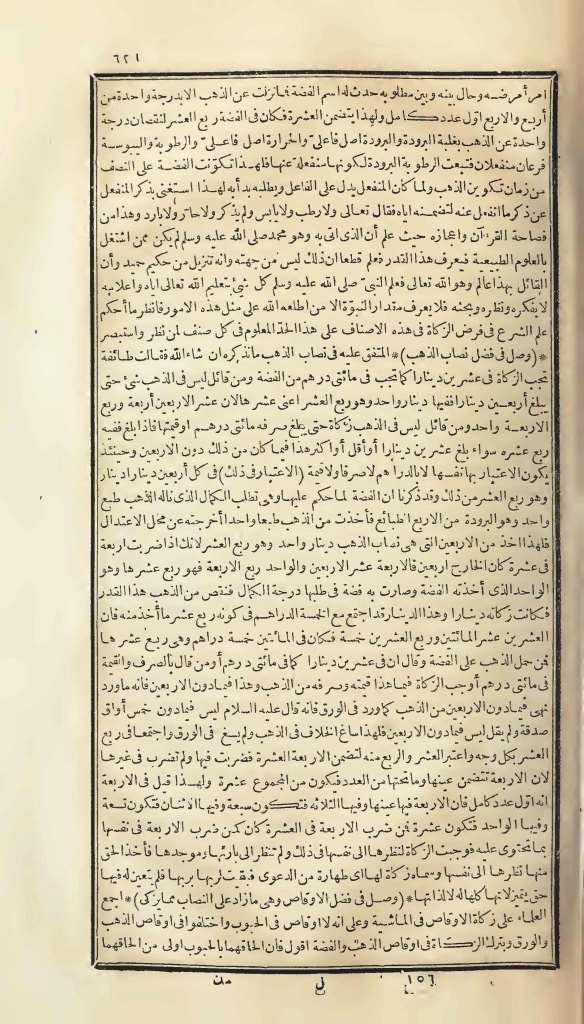 ٦٢١
امر أمرضه وحال بينه وبين مطلوبه حدث له اسم الفضة فما نزلت عن الذهب الا بدرجة واحدة من
أربع والاربع اول عدد كامل ولهذا يتضمن العشرة فكان فى الفضة ربع العشر لنقصان درجة
واحدة عن الذهب بغلبة البرودة والبرودة اصل فاعلىّ والحرارة اصل فاعلىّ والرطوبة واليبوسة
فرعان منفعلان فتبعت الرطوبة البرودة لكونها منفعلة عنها فلهذا تكوّنت الفضة على النصف
من زمان تكوين الذهب ولما كان المنفعل يدل على الفاعل ويطلبه بذاته لهذا استغنى بذكر المنفعل
عن ذكر ما انفعل عنه لتضمنه اياه فقال تعالى ولا رطب ولا يابس ولم يذكر ولا حارّ ولا بارد وهذا من
فصاحة القرءآن واعجازه حيث علم أن الذى اتى به وهو محمد صلى الله عليه وسلم لم يكن ممن اشتغل
بالعلوم الطبيعية فيعرف هذا القدر فعلم قطعا ان ذلك ليس من جهته وانه تنزيل من حكيم حميد وأن
القائل بهذا عالم وهو الله تعالى فعلم النبىّ صلى الله عليه وسلم كل شئ بتعليم الله تعالى اياه واعلامه
لا بفكره ونظره وبحثه فلا يعرف مقدار النبوّة الا من اطلعه الله على مثل هذه الامور فانظر ما أحكم
علم الشرع فى فرض الزكاة فى هذه الاصناف على هذا الحدّ المعلوم فى كل صنف لمن نظر واستبصر
*(وصل فى فضل نصاب الذهب)* المتفق عليه فى نصاب الذهب ما نذكره ان شاء الله فقالت طائفة
تجب الزكاة فى عشرين دينارا كما تجب فى مائتى درهم من الفضة ومن قائل ليس فى الذهب شئ حتى
يبلغ أربعين دينارا ففيها دينار واحد وهو ربع العشر اعنى عشرها لان عشر الاربعين أربعة وربع
الاربعة واحد ومن قائل ليس فى الذهب زكاة حتى يبلغ صرفه مائتى درهم اوقيمتها فاذا بلغ ففيه
ربع عشره سواء بلغ عشرين دينارا أو أقل أو اكثر هذا فيما كان من ذلك دون الاربعين وحينئذ
يكون الاعتبار بها نفسها لا بالدراهم لا صرفا ولا قيمة (الاعتبار فى ذلك) فى كل أربعين دينارا دينار
وهو ربع العشر من ذلك وقد ذكرنا ان الفضة لما حكم عليها وهى تطلب الكمال الذى ناله الذهب طبع
واحد وهو البرودة من الاربع الطبائع فأخذت من الذهب طبعا واحدا أخرجته عن محل الاعتدال
فلهذا اخذ من الاربعين التى هى نصاب الذهب دينار واحد وهو ربع العشر لانك اذا ضربت اربعة
فى عشرة كان الخارج اربعين فالاربعة عشر الاربعين والواحد ربع الاربعة فهو ربع عشرها وهو
الواحد الذى أخذته الفضة وصارت به فضة فى طلبها درجة الكمال فنقص من الذهب هذا القدر
فكانت زكاته دينارا وهذا الدينار قد اجتمع مع الخمسة الدراهم فى كونه ربع عشر ما أخذ منه فان
العشرين عشر المائتين وربع العشرين خمسة فكان فى المائتين خمسة دراهم وهى ربع عشرها
فمن حمل الذهب على الفضة وقال ان فى عشرين دينارا كما فى مائتى درهم أو من قال بالصرف والقيمة
فى مائتى درهم أوجب الزكاة فيما هذا قيمته وصرفه من الذهب وهذا فيما دون الاربعين فانه ما ورد
نهى فيما دون الاربعين من الذهب كما ورد فى الورق فانه قال عليه السلام ليس فيما دون خمس أواق
صدقة ولم يقل ليس فيما دون الاربعين فلهذا ساغ الخلاف فى الذهب ولم يسغ فى الورق واجتمعا فى ربع
العشر بكل وجه واعتبر العشر والربع منه لتضمن الاربعة العشرة فضربت فيها ولم تضرب فى غيرها
لان الاربعة تتضمن عينها وما تحتها من العدد فيكون من المجموع عشرة ولهذا قيل فى الاربعة
انه اول عدد كامل فان الاربعة فيها عينها وفيها الثلاثة فتكون سبعة وفيها الاثنان فتكون تسعة
وفيها الواحد فتكون عشرة فمن ضرب الاربعة فى العشرة كان كمن ضرب الاربعة فى نفسها
بما تحتوى عليه فوجبت الزكاة لنظرها الى نفسها فى ذلك ولم تنظر الى بارئها وموجدها فأخذ الحق
منها نظرها الى نفسها وسماه زكاة لها اى طهارة من الدعوى فبقيت لربها بربها فلم يتعين له فيها
حق يتميز لانها كلها له لا لذاتها *(وصل فى فضل الاوقاص وهى ما زاد على النصاب مما يزكى)* اجمع
العلماء على زكاة الاوقاص فى الماشية وعلى انه لا اوقاص فى الحبوب واختلفوا فى اوقاص الذهب
والورق وبترك الزكاة فى اوقاص الذهب والفضة اقول فان الحاقهما بالحبوب اولى من الحاقهما
١٥٦ ل مك